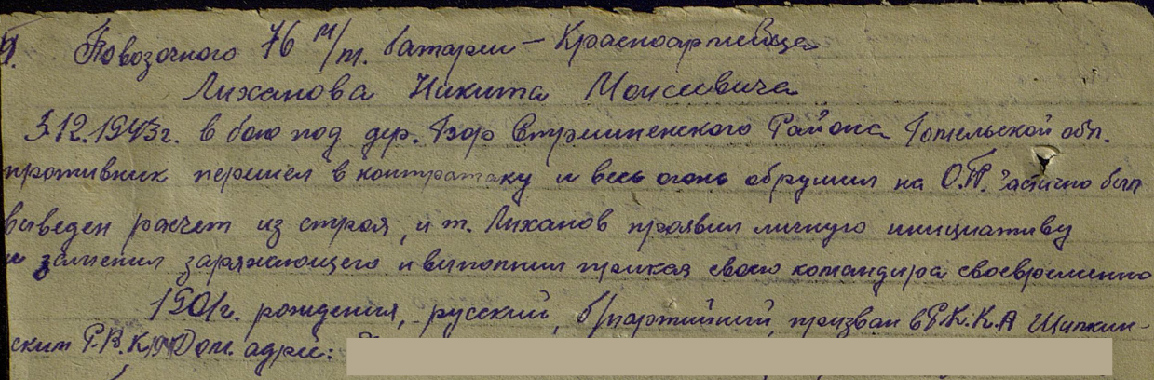 Повозочного 76 м/м. батареи – Красноармейца
Лиханова Никита Моисеевича
3.12.1943г. в бою под дер. Бор Стрешинского Района Гомельской обл.
противник перешел в контратаку и весь огонь обрушил на О.П. Частично был
выведен расчет из строя, и т. Лиханов проявил личную инициативу
и заменил заряжающего и выполнил приказ своего командира своевременно
1901г. рождения, русский, б/партийный, призван в Р.К.К.А
ским Р.В.К. Дом. адрес: